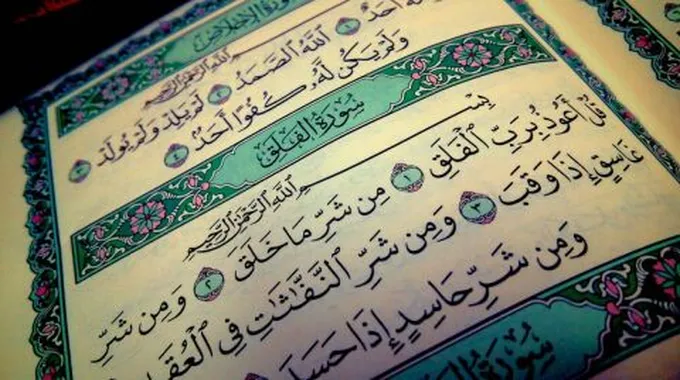 سورة الإخلاص
أَحَدٌ ١ ٱللَّهُ ٱلصَّمَدُ ٢ لَمْ يَلِدْ وَلَمْ يُولَدْ ٣
وَلَمْ يَكُن لَّهُۥ كُفُوًا أَحَدٌ ٤
سُورَةُ الفَلَقِ
بِسْمِ ٱللَّهِ ٱلرَّحْمَٰنِ ٱلرَّحِيمِ
قُلْ أَعُوذُ بِرَبِّ ٱلْفَلَقِ ١ مِن شَرِّ مَا خَلَقَ ٢ وَمِن شَرِّ
غَاسِقٍ إِذَا وَقَبَ ٣ وَمِن شَرِّ ٱلنَّفَّٰثَٰتِ فِى ٱلْعُقَدِ
وَمِن شَرِّ حَاسِدٍ إِذَا حَسَدَ
سُورَةُ